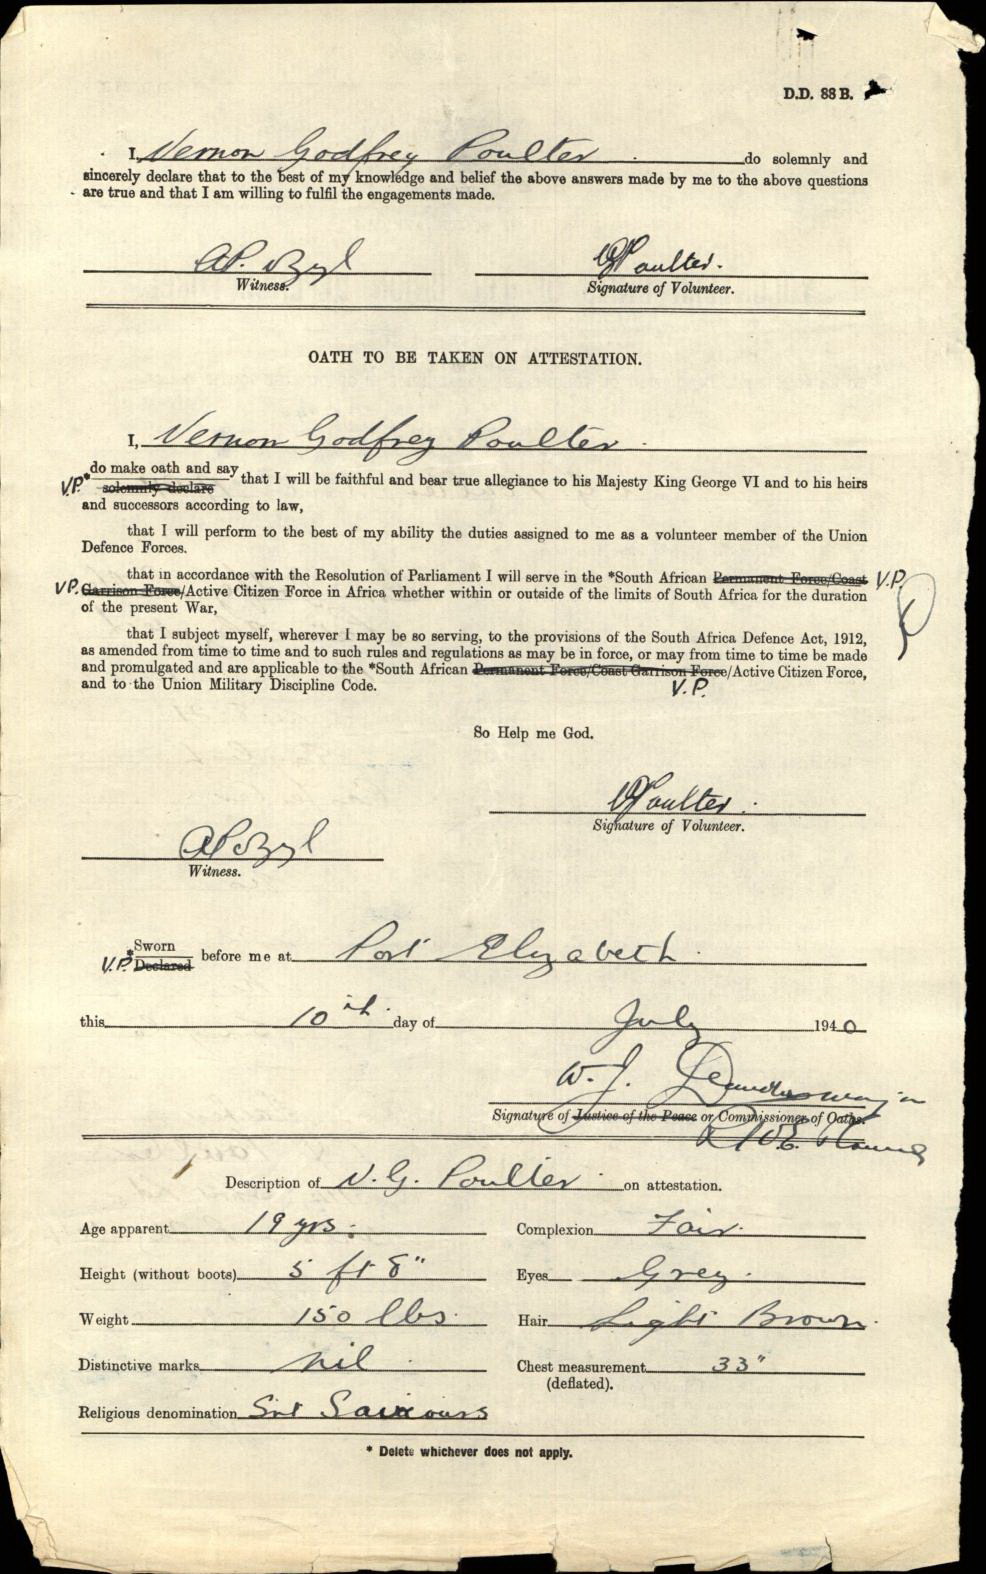 D.D. 88 B.
I, Vernon Godfrey Poulter do solemnly and
sincerely declare that to the best of my knowledge and belief the above answers made by me to the above questions
are true and that I am willing to fulfil the engagements made.
VG Poulter.
Witness.
Signature of Volunteer.
OATH TO BE TAKEN ON ATTESTATION.
I, Vernon Godfrey Poulter
V.P. * do make oath and say
solemnly declare
that I will be faithful and bear true allegiance to his Majesty King George VI and to his heirs
and successors according to law,
that I will perform to the best of my ability the duties assigned to me as a volunteer member of the Union
Defence Forces.
that in accordance with the Resolution of Parliament I will serve in the *South African Permanent Force/Coast V.P.
V.P. Garrison Force/Active Citizen Force in Africa whether within or outside of the limits of South Africa for the duration
of the present War,
that I subject myself, wherever I may be so serving, to the provisions of the South Africa Defence Act, 1912,
as amended from time to time and to such rules and regulations as may be in force, or may from time to time be made
and promulgated and are applicable to the *South African Permanent Force/Coast Garrison Force/Active Citizen Force,
and to the Union Military Discipline Code.
V.P.
So Help me God.
VG Poulter.
Signature of Volunteer.
Witness.
* Sworn
V.P. Declared
before me at Port Elizabeth
this 10th day of July 1940
W. J.
Signature of Justice of the Peace or Commissioner of Oaths.
Description of V. G. Poulter on attestation.
Age apparent 19 yrs. Complexion Fair
Height (without boots) 5 ft 8" Eyes Grey
Weight 150 lbs Hair Light Brown
Distinctive marks nil Chest measurement 33"
(deflated).
Religious denomination Snt Saviours
* Delete whichever does not apply.